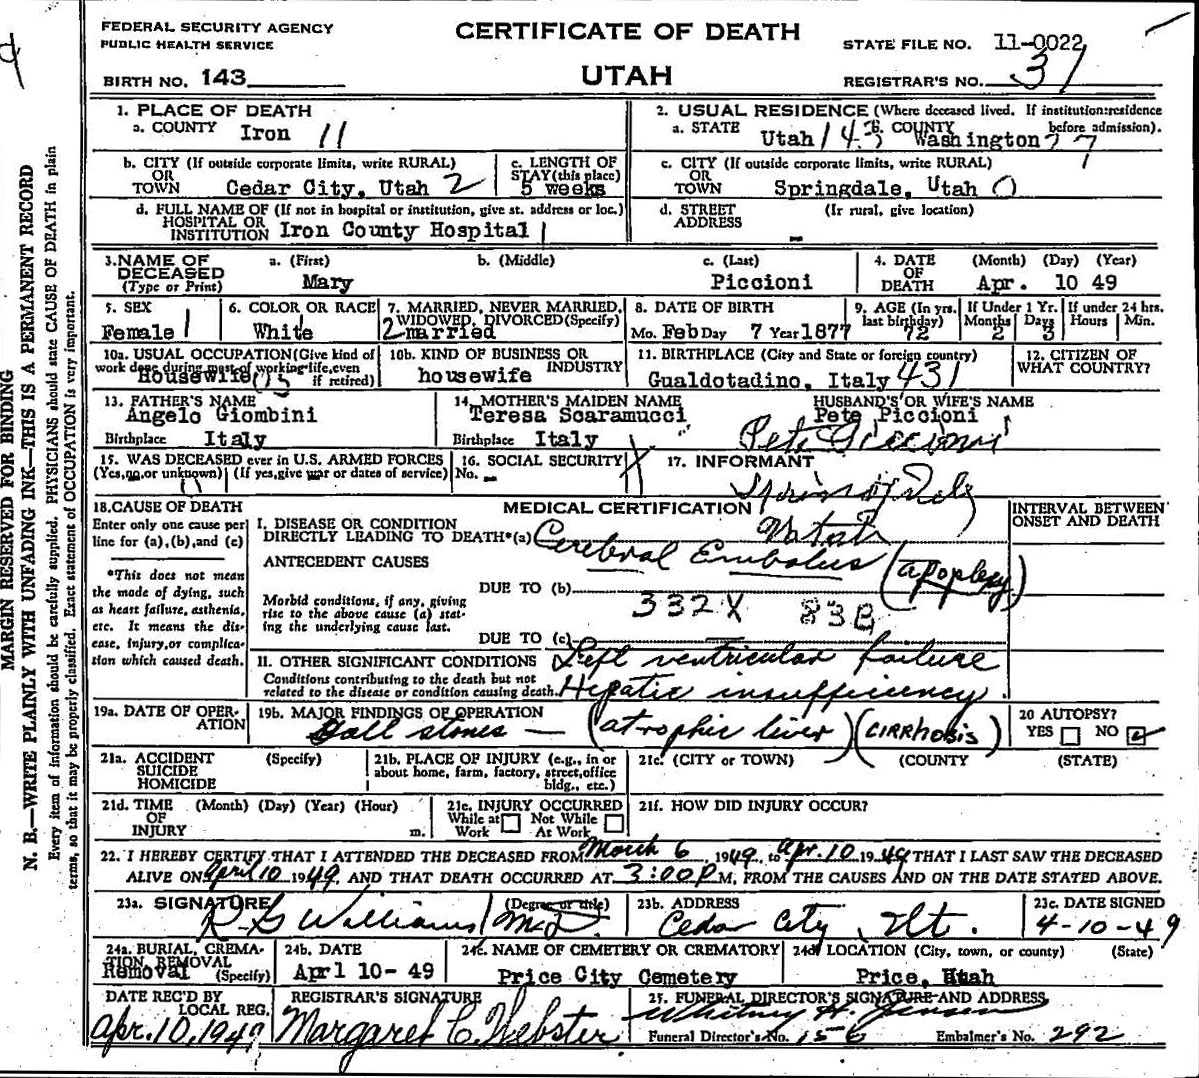 FEDERAL SECURITY AGENCY
PUBLIC HEALTH SERVICE
CERTIFICATE OF DEATH
STATE FILE NO. 11-0022
BIRTH NO. 143
UTAH
REGISTRAR'S NO. 37
MARGIN RESERVED FOR BINDING
N. B.—WRITE PLAINLY WITH UNFADING INK—THIS IS A PERMANENT RECORD
Every item of information should be carefully supplied. PHYSICIANS should state CAUSE OF DEATH in plain
terms, so that it may be properly classified. Exact statement of OCCUPATION is very important.
1. PLACE OF DEATH
a. COUNTY Iron 11
2. USUAL RESIDENCE (Where deceased lived. If institution:residence
before admission).
a. STATE Utah 143 b. COUNTY Washington 27
b. CITY (If outside corporate limits, write RURAL)
OR
TOWN Cedar City, Utah 2
c. LENGTH OF
STAY(this place)
5 weeks
c. CITY (If outside corporate limits, write RURAL)
OR
TOWN Springdale, Utah 0
d. FULL NAME OF (If not in hospital or institution, give st. address or loc.)
HOSPITAL OR
INSTITUTION Iron County Hospital 1
d. STREET (If rural, give location)
ADDRESS -
3. NAME OF
DECEASED
(Type or Print)
a. (First)
Mary
b. (Middle)
c. (Last)
Piccioni
4. DATE
OF
DEATH
(Month) (Day) (Year)
Apr. 10 49
5. SEX
Female 1
6. COLOR OR RACE
White
7. MARRIED, NEVER MARRIED,
WIDOWED, DIVORCED(Specify)
2 married
8. DATE OF BIRTH
Mo. Feb Day 7 Year 1877
9. AGE (In yrs.
last birthday)
72
If Under 1 Yr.
Months Days
2 3
If under 24 hrs.
Hours Min.
10a. USUAL OCCUPATION(Give kind of
work done during most of working life, even
if retired)
Housewife
10b. KIND OF BUSINESS OR
INDUSTRY
housewife
11. BIRTHPLACE (City and State or foreign country)
Gualdotadino, Italy 431
12. CITIZEN OF
WHAT COUNTRY?
13. FATHER'S NAME
Angelo Giombini
Birthplace Italy
14. MOTHER'S MAIDEN NAME
Teresa Scaramucci
Birthplace Italy
HUSBAND'S OR WIFE'S NAME
Pete Piccioni
Pete Piccioni
15. WAS DECEASED ever in U.S. ARMED FORCES
(Yes, no, or unknown) (If yes, give war or dates of service)
16. SOCIAL SECURITY
No. -
17. INFORMANT
Springdale
Utah
18. CAUSE OF DEATH
Enter only one cause per
line for (a), (b), and (c)
*This does not mean
the mode of dying, such
as heart failure, asthenia,
etc. It means the dis-
ease, injury, or complica-
tion which caused death.
MEDICAL CERTIFICATION
INTERVAL BETWEEN
ONSET AND DEATH
I. DISEASE OR CONDITION
DIRECTLY LEADING TO DEATH*(a) Cerebral Embolus (apoplexy)
ANTECEDENT CAUSES
DUE TO (b)
332X 83B
Morbid conditions, if any, giving
rise to the above cause (a) stat-
ing the underlying cause last.
DUE TO (c)
II. OTHER SIGNIFICANT CONDITIONS
Conditions contributing to the death but not
related to the disease or condition causing death.
Left ventricular failure
Hepatic insufficiency.
19a. DATE OF OPER-
ATION
19b. MAJOR FINDINGS OF OPERATION
Gall stones — (atrophic liver) (CIRRHOSIS)
20 AUTOPSY?
YES NO
21a. ACCIDENT (Specify)
SUICIDE
HOMICIDE
21b. PLACE OF INJURY (e.g., in or
about home, farm, factory, street, office
bldg., etc.)
21c. (CITY or TOWN) (COUNTY) (STATE)
21d. TIME (Month) (Day) (Year) (Hour)
OF
INJURY m.
21e. INJURY OCCURRED
While at Not While
Work At Work
21f. HOW DID INJURY OCCUR?
22. I HEREBY CERTIFY THAT I ATTENDED THE DECEASED FROM March 6, 1949, to Apr. 10 1949 THAT I LAST SAW THE DECEASED
ALIVE ON April 10 1949, AND THAT DEATH OCCURRED AT 3:00 P M, FROM THE CAUSES AND ON THE DATE STATED ABOVE.
23a. SIGNATURE (Degree or title)
R G Williams M.D.
23b. ADDRESS
Cedar City, Ut.
23c. DATE SIGNED
4-10-49
24a. BURIAL, CREMA-
TION, REMOVAL
Removal (Specify)
24b. DATE
Aprl 10-49
24c. NAME OF CEMETERY OR CREMATORY
Price City Cemetery
24d. LOCATION (City, town, or county) (State)
Price, Utah
DATE REC'D BY
LOCAL REG.
Apr. 10, 1949
REGISTRAR'S SIGNATURE
Margaret C. Webster
25. FUNERAL DIRECTOR'S SIGNATURE AND ADDRESS
Whitney H. Jensen
Funeral Director's No. 156 Embalmer's No. 292